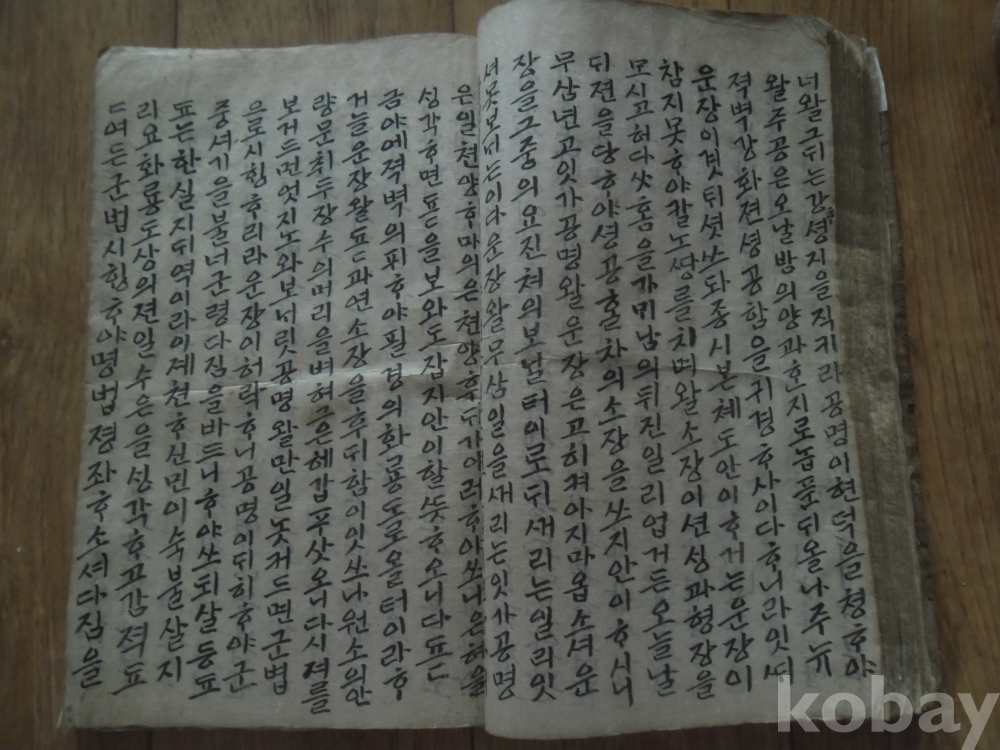 너왈그뒤는강셩지을직키라공명이현덕을쳥ᄒᆞ야
왈주공은오날밤의양과호지로놉푼뒤올나주뉴
젹벽강화젼셩공함을귀경ᄒᆞ사이다ᄒᆞ니라잇ᄯᅥ
운장이겻틔셧쓰되종시본쳬도안이ᄒᆞ거는운장이
참지못ᄒᆞ야칼노ᄯᅡᆼ를치며왈소장이션ᄉᆡᆼ과형장을
모시고허다ᄊᆞ홈을ᄀᆞᄆᆡ남의뒤진일리업거든오늘날
ᄃᆡ젼을당ᄒᆞ야셩공홀차의소장을쓰지안이ᄒᆞ시니
무삼년고잇가공명왈운장은고히겨아지마옵소셔운
장을그중의요진쳐의보닐터이로ᄃᆡᄭᅥ리는일리잇
셔못보ᄂᆡ는이다운장왈무삼일을ᄭᅥ리는잇가공명
은일쳔양후마의은쳔양후ᄃᆡ가이러ᄒᆞ야쓰니은혀을
ᄉᆡᆼ각ᄒᆞ면됴됴을보와도잡지안이할뜻ᄒᆞ오니다됴됴
금야에젹벽의픠ᄒᆞ야필경의화룡도로올터이라ᄒᆞ
거늘운장왈됴됴과연소장을후ᄃᆡ함이잇쓰나원소의안
량문취두장수의머리을벼혀은혜갑푸삿오니다시져를
보거드면엇지노와보ᄂᆡ릿공명왈만일놋커드면군법
을로시힝ᄒᆞ리라운장이허락ᄒᆞ니공명이ᄃᆡ히ᄒᆞ야군
중셔기을불너군령다짐을바드니ᄒᆞ야쓰되살등됴
됴는한실지ᄃᆡ역이라이계쳔ᄒᆞ신민이숙불살지
리요화룡도상의젼일수은을ᄉᆡᆼ각ᄒᆞ고감젹됴
됴여든군법시힝ᄒᆞ야명법졍좌ᄒᆞ소셔다짐을
kobay